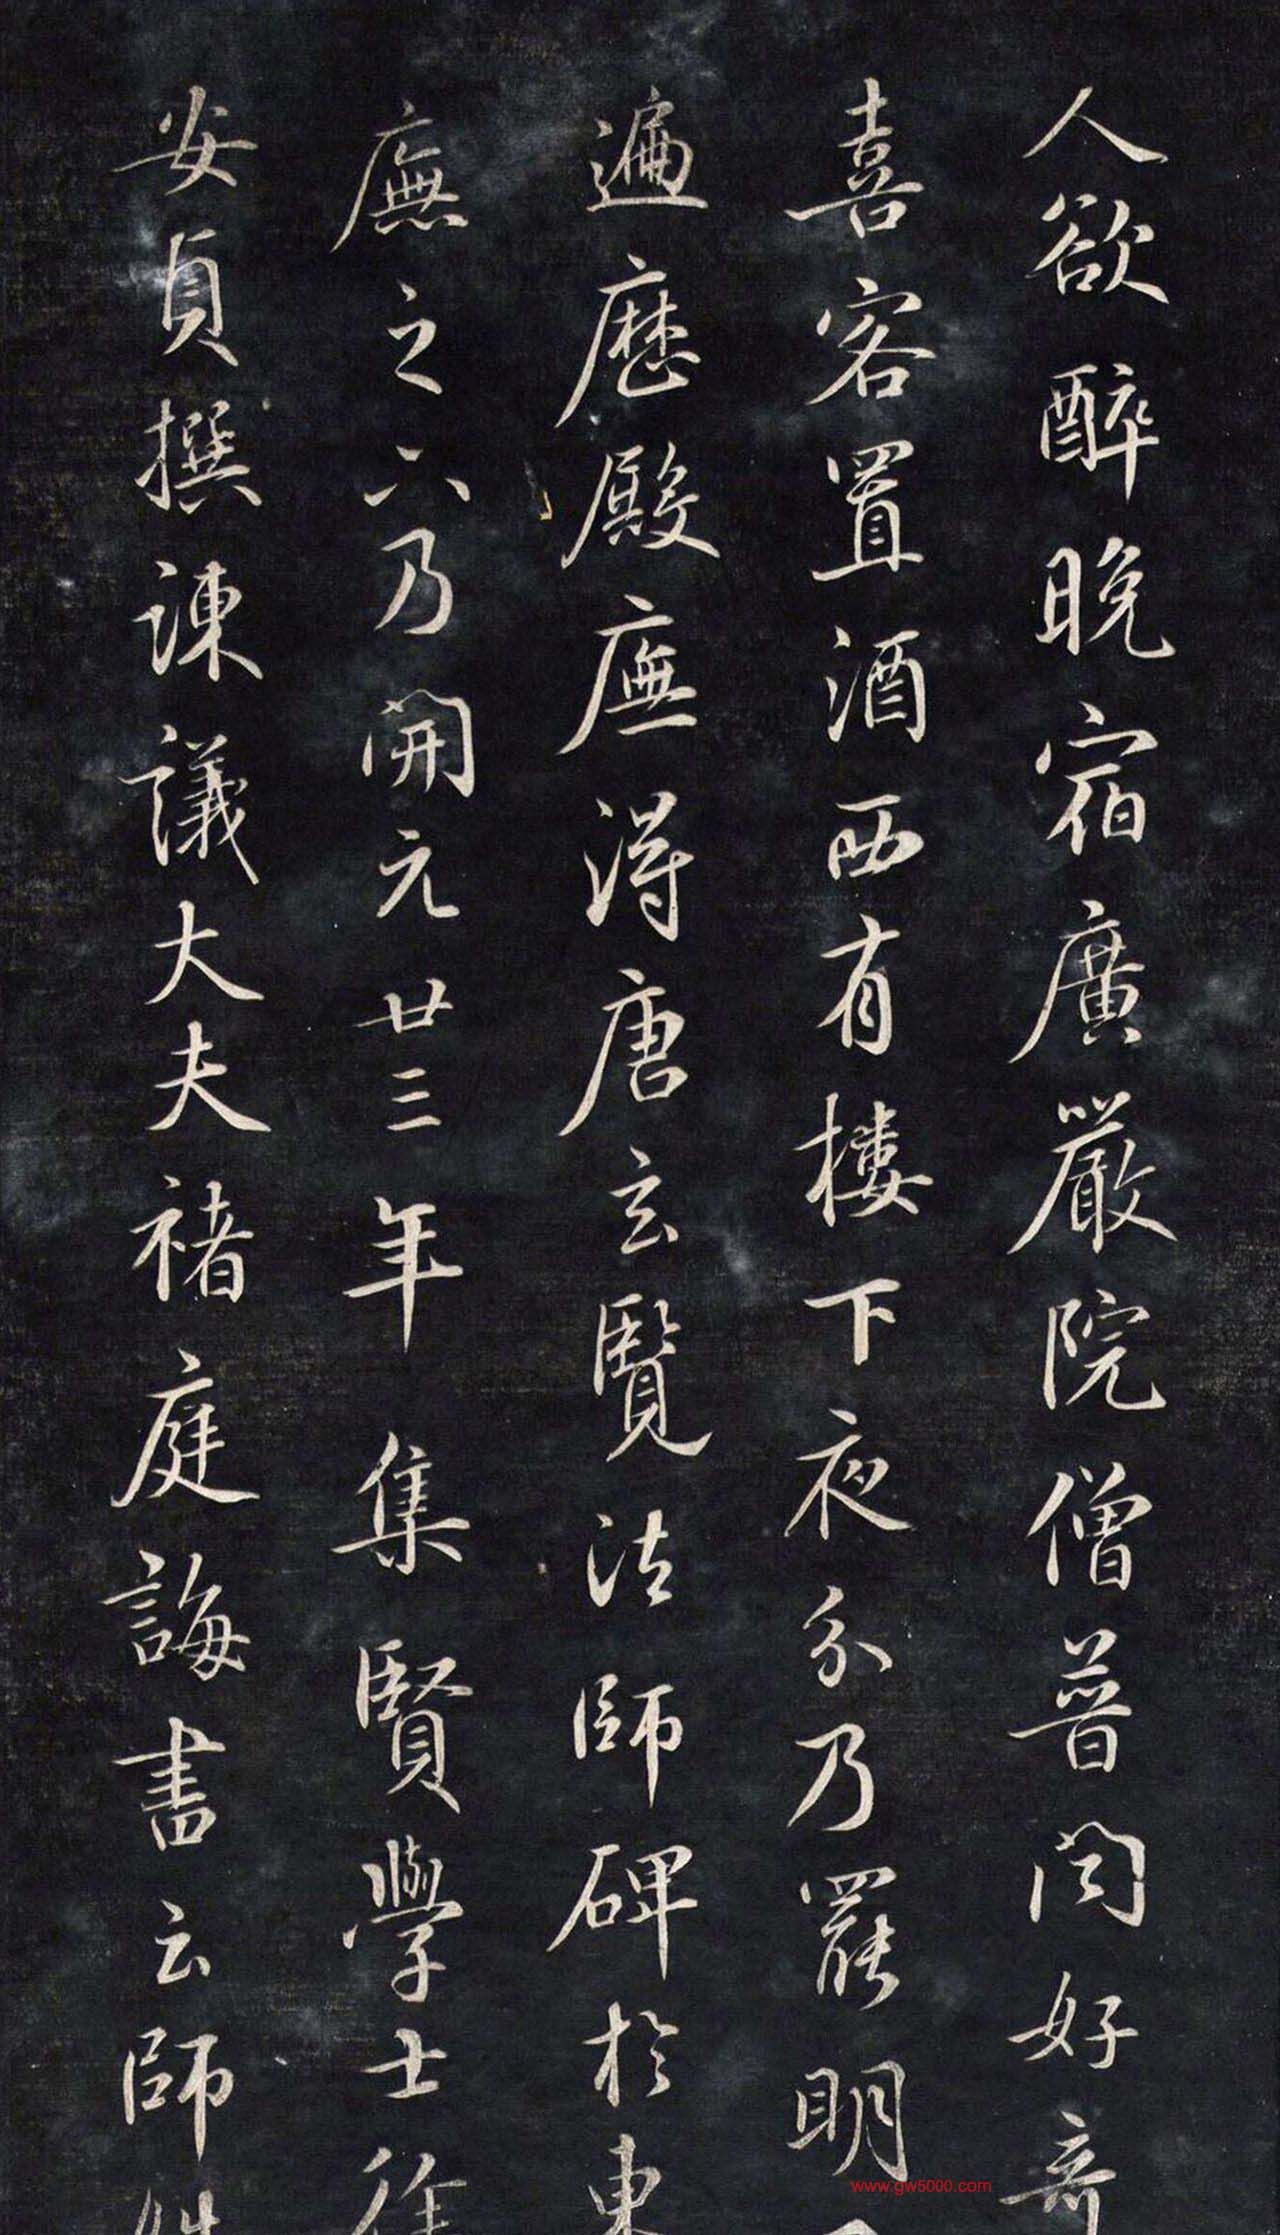 人欲醉晚宿廣嚴院僧普闻好奇
喜客置酒西有樓下夜分乃罷明
遍歷殿廡得唐玄覽法師碑於東
廡之下乃開元廿三年集賢學士徐
安貞撰諫議大夫褚庭誨書云師姓
www.gw5000.com